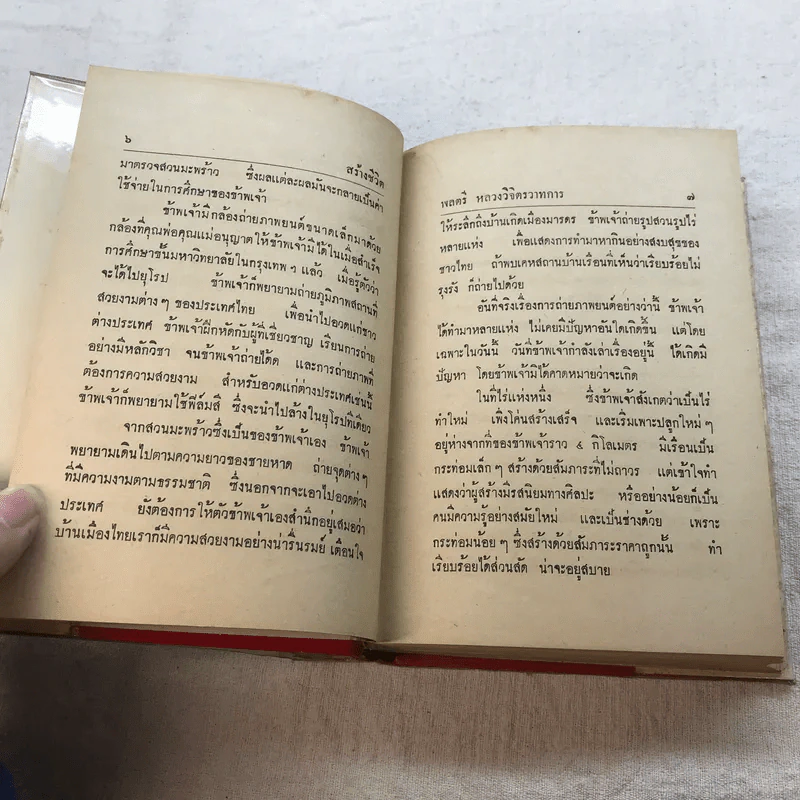 ๖ สร้างชีวิต
มาตรวจสวนมะพร้าว ซึ่งผลแต่ละผลมันจะกลายเป็นค่า
ใช้จ่ายในการศึกษาของข้าพเจ้า
ข้าพเจ้ามีกล้องถ่ายภาพยนต์ขนาดเล็กมาด้วย
กล้องที่คุณพ่อคุณแม่อนุญาตให้ข้าพเจ้ามีได้ในเมื่อสำเร็จ
การศึกษาขั้นมหาวิทยาลัยในกรุงเทพ ๆ แล้ว เมื่อรู้ตัวว่า
จะได้ไปยุโรป ข้าพเจ้าก็พยายามถ่ายภูมิภาพสถานที่
สวยงามต่าง ๆ ของประเทศไทย เพื่อนำไปอวดแก่ชาว
ต่างประเทศ ข้าพเจ้าฝึกหัดกับผู้ที่เชี่ยวชาญ เรียนการถ่าย
อย่างมีหลักวิชา จนข้าพเจ้าถ่ายได้ดี และการถ่ายภาพที่
ต้องการความสวยงาม สำหรับอวดแก่ต่างประเทศเช่นนี้
ข้าพเจ้าก็พยายามใช้ฟีล์มสี ซึ่งจะนำไปล้างในยุโรปทีเดียว
จากสวนมะพร้าวซึ่งเป็นของข้าพเจ้าเอง ข้าพเจ้า
พยายามเดินไปตามความยาวของชายหาด ถ่ายจุดต่าง ๆ
ที่มีความงามตามธรรมชาติ ซึ่งนอกจากจะเอาไปอวดต่าง
ประเทศ ยังต้องการให้ตัวข้าพเจ้าเองสำนึกอยู่เสมอว่า
บ้านเมืองไทยเราก็มีความสวยงามอย่างน่ารื่นรมย์ เตือนใจ
พลตรี หลวงวิจิตรวาทการ ๗
ให้ระลึกถึงบ้านเกิดเมืองมารดร ข้าพเจ้าถ่ายรูปสวนรูปไร่
หลายแห่ง เพื่อแสดงการทำมาหากินอย่างสงบสุขของ
ชาวไทย ถ้าพบเคหสถานบ้านเรือนที่เห็นว่าเรียบร้อยไม่
รุงรัง ก็ถ่ายไปด้วย
อันที่จริงเรื่องการถ่ายภาพยนต์อย่างว่านี้ ข้าพเจ้า
ได้ทำมาหลายแห่ง ไม่เคยมีปัญหาอันใดเกิดขึ้น แต่โดย
เฉพาะในวันนี้ วันที่ข้าพเจ้ากำลังเล่าเรื่องอยู่นี้ ได้เกิดมี
ปัญหา โดยข้าพเจ้ามิได้คาดหมายว่าจะเกิด
ในที่ไร่แห่งหนึ่ง ซึ่งข้าพเจ้าสังเกตว่าเป็นไร่
ทำใหม่ เพิ่งโค่นสร้างเสร็จ และเริ่มเพาะปลูกใหม่ ๆ
อยู่ห่างจากที่ของข้าพเจ้าราว ๔ กิโลเมตร มีเรือนเป็น
กระท่อมเล็ก ๆ สร้างด้วยสัมภาระที่ไม่ถาวร แต่เข้าใจทำ
แสดงว่าผู้สร้างมีรสนิยมทางศิลปะ หรืออย่างน้อยก็เป็น
คนมีความรู้อย่างสมัยใหม่ และเป็นช่างด้วย เพราะ
กระท่อมน้อย ๆ ซึ่งสร้างด้วยสัมภาระราคาถูกนั้น ทำ
เรียบร้อยได้ส่วนสัด น่าจะอยู่สบาย